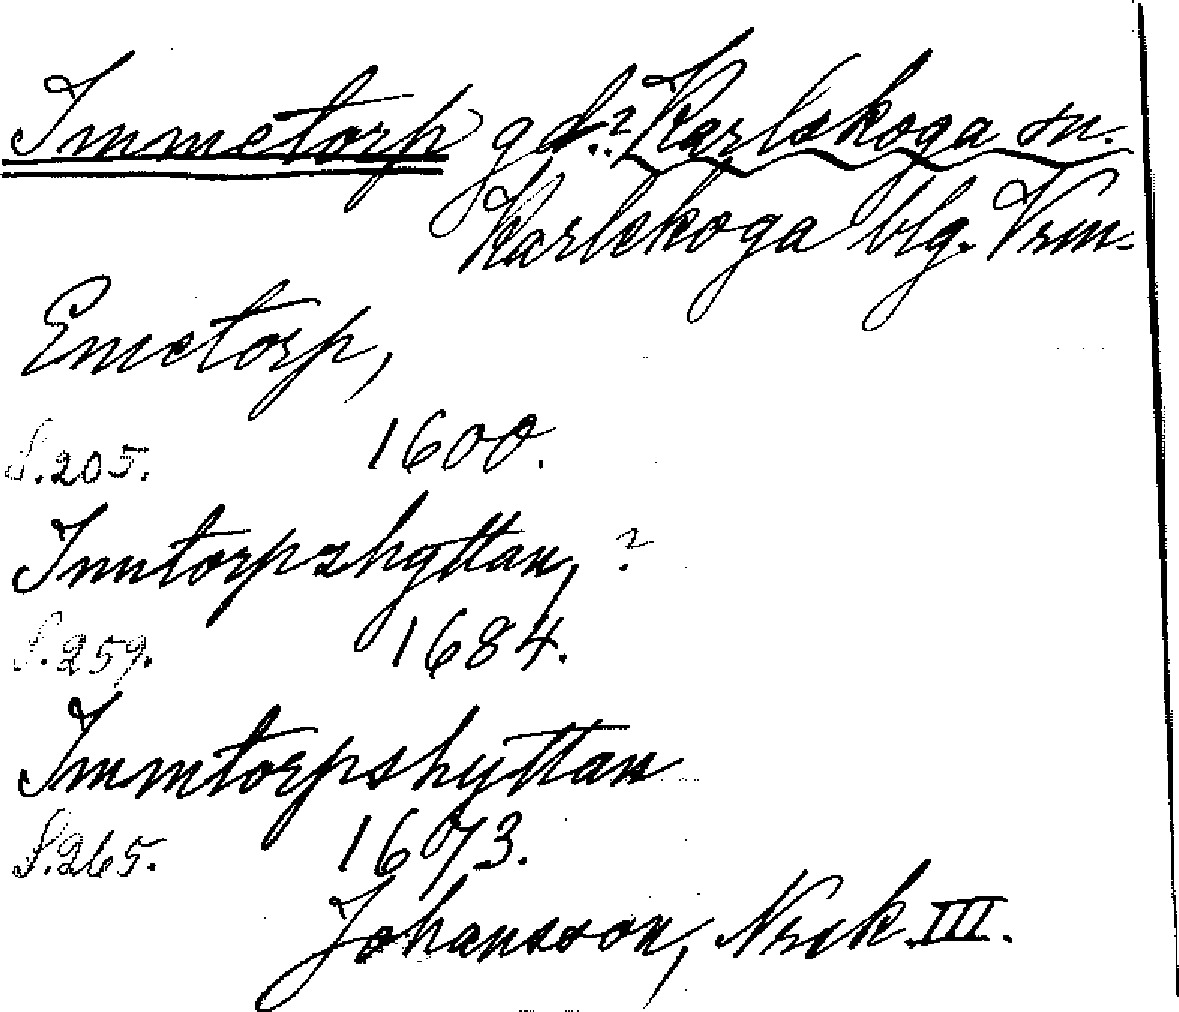 Immetorp gd.? Karlskoga sn.
Karlskoga blg. Vrm.
Emetorp,
S. 205. 1600.
Imtorpshyttan, ?
S. 259. 1684.
Immtorpshyttan
S. 265. 1673.
Johansson, Nrck III.